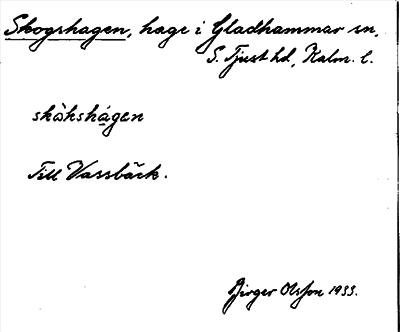 Skogshagen, hage i Gladhammar sn,
S. Tjust hd, Kalm. l.
skòkshágen
Till Vassbäck.
Birger Olsson 1933.